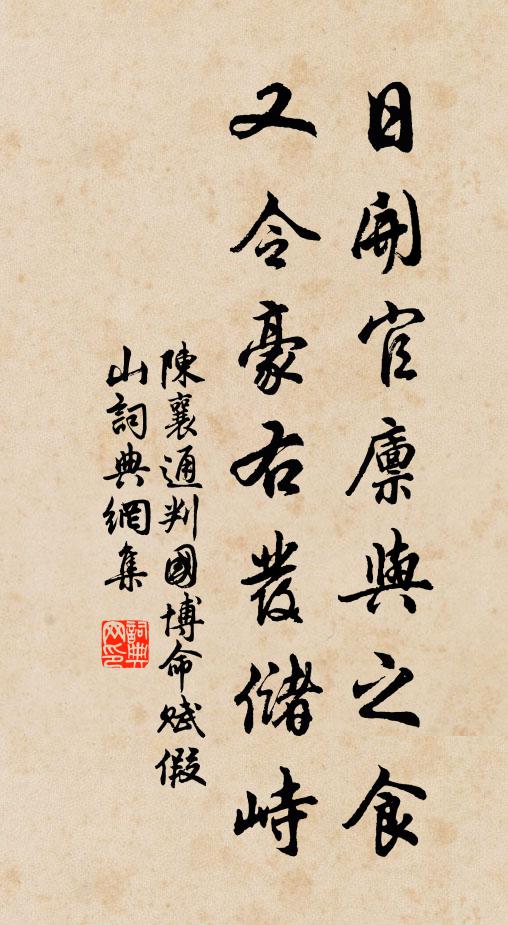 日開官廩與之食
又令豪右發儲峙
陳襄通判國博命賦假
山詞典網集
詞典
网印